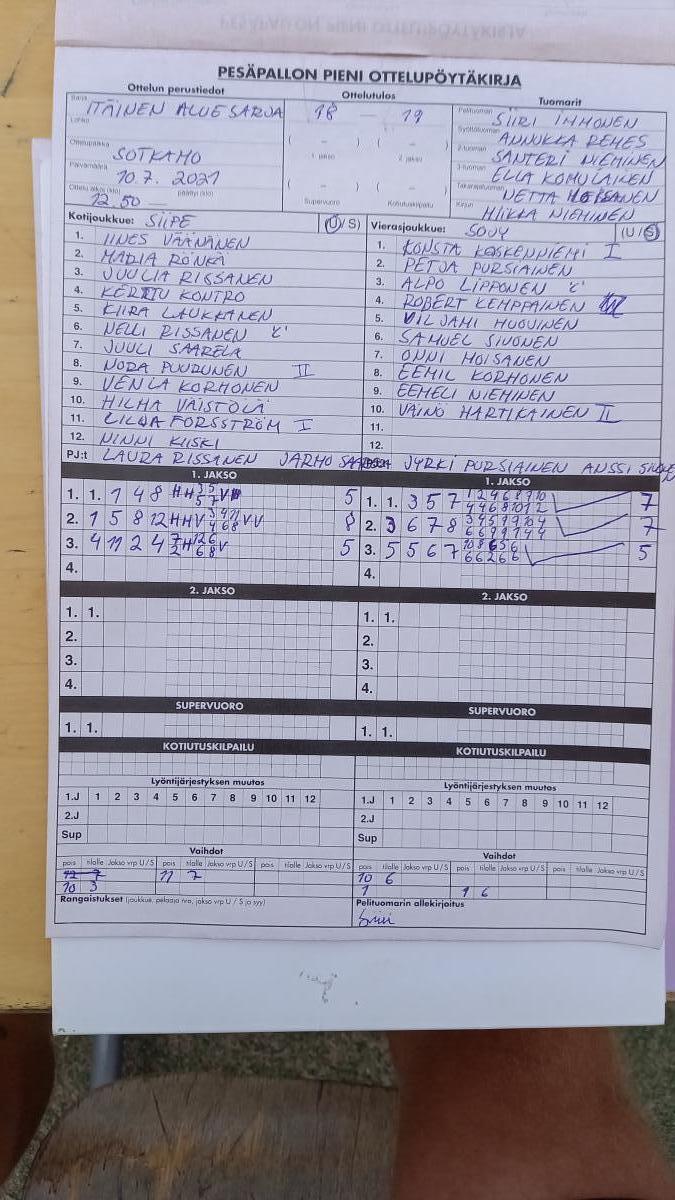 PESÄPALLON PIENI OTTELUPÖYTÄKIRJA
Ottelun perustiedot Ottelutulos Tuomarit
Sarja ITÄINEN ALUESARJA 18 — 19 Pelituomari SIIRI IMMONEN
Lohko
Syöttötuomari ANNUKKA REHES
Ottelupaikka SOTKAMO ( – ) ( – ) 2-tuomari SANTERI NIEMINEN
1. jakso 2. jakso 3-tuomari ELLA KOMULAINEN
Päivämäärä 10.7. 2021 ( – ) ( – ) Takarajatuomari NETTA MOISANEN
Ottelu alkoi (klo) 12.50 — päättyi (klo) Supervuoro Kotiutuskilpailu Kirjuri HIIKKA NIEMINEN
Kotijoukkue: SIIPE (U/S) Vierasjoukkue: SOJY (U/S)
1. IINES VÄÄNÄNEN
2. MARIA RÖNKÄ
3. JUULIA RISSANEN
4. KERTTU KONTRO
5. KIIRA LAUKKANEN
6. NELLI RISSANEN 'C'
7. JUULI SAARELA
8. NORA PUURUNEN II
9. VENLA KORHONEN
10. HILMA VÄISTÖLÄ
11. LILJA FORSSTRÖM I
12. NINNI KIISKI
1. KONSTA KOSKENNIEMI I
2. PETJA PURSIAINEN
3. ALPO LIPPONEN 'C'
4. ROBERT KEMPPAINEN
5. VILJAMI HUOVINEN
6. SAMUEL SIVONEN
7. ONNI MOISANEN
8. EEMIL KORHONEN
9. EEMELI NIEMINEN
10. VÄINÖ HARTIKAINEN II
11.
12.
PJ:t LAURA RISSANEN JARMO JYRKI PURSIAINEN ANSSI
1. JAKSO 1. JAKSO
1. 1. 1 4 8 H H 5 1. 1. 3 5 7 7
2. 1 5 8 12 H H V V V 8 2. 3 6 7 8 7
3. 4 11 2 4 H V 5 3. 5 5 6 7 5
4. 4.
2. JAKSO 2. JAKSO
1. 1. 1. 1.
2. 2.
3. 3.
4. 4.
SUPERVUORO SUPERVUORO
1. 1. 1. 1.
KOTIUTUSKILPAILU KOTIUTUSKILPAILU
Lyöntijärjestyksen muutos Lyöntijärjestyksen muutos
1.J 1 2 3 4 5 6 7 8 9 10 11 12 1.J 1 2 3 4 5 6 7 8 9 10 11 12
2.J 2.J
Sup Sup
Vaihdot Vaihdot
pois tilalle Jakso vrp U/S pois tilalle Jakso vrp U/S pois tilalle Jakso vrp U/S pois tilalle Jakso vrp U/S pois tilalle Jakso vrp U/S pois tilalle Jakso vrp U/S
12 7 11 7 10 6
10 3 1 1 6
Rangaistukset (joukkue, pelaaja nro, jakso vrp U / S ja syy) Pelituomarin allekirjoitus
Siiri